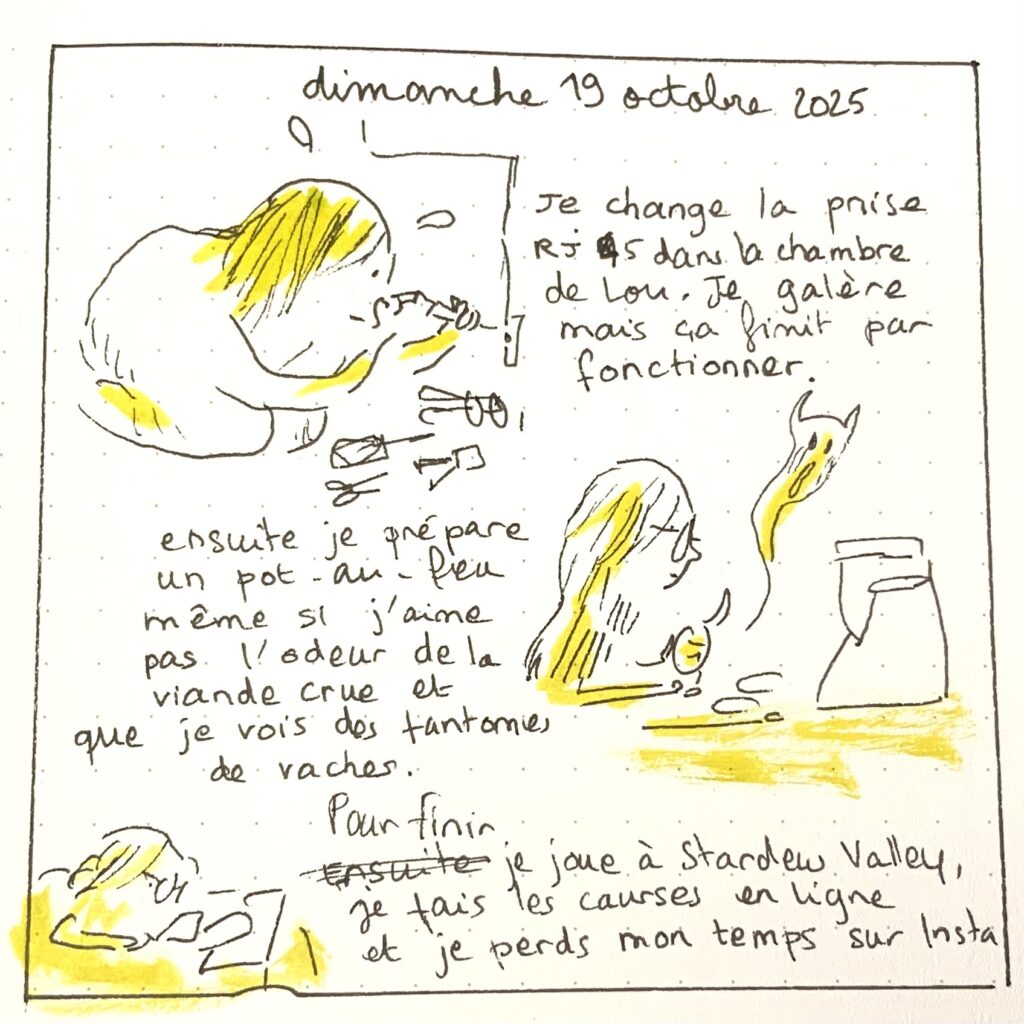 dimanche 19 octobre 2025
Je change la prise
RJ 45 dans la chambre
de Lou. Je galère
mais ça finit par
fonctionner.
ensuite je prépare
un pot-au-feu
même si j'aime
pas l'odeur de la
viande crue et
que je vois des fantomes
de vaches.
Pour finir
ensuite je joue à Stardew Valley,
je fais les courses en ligne
et je perds mon temps sur Insta